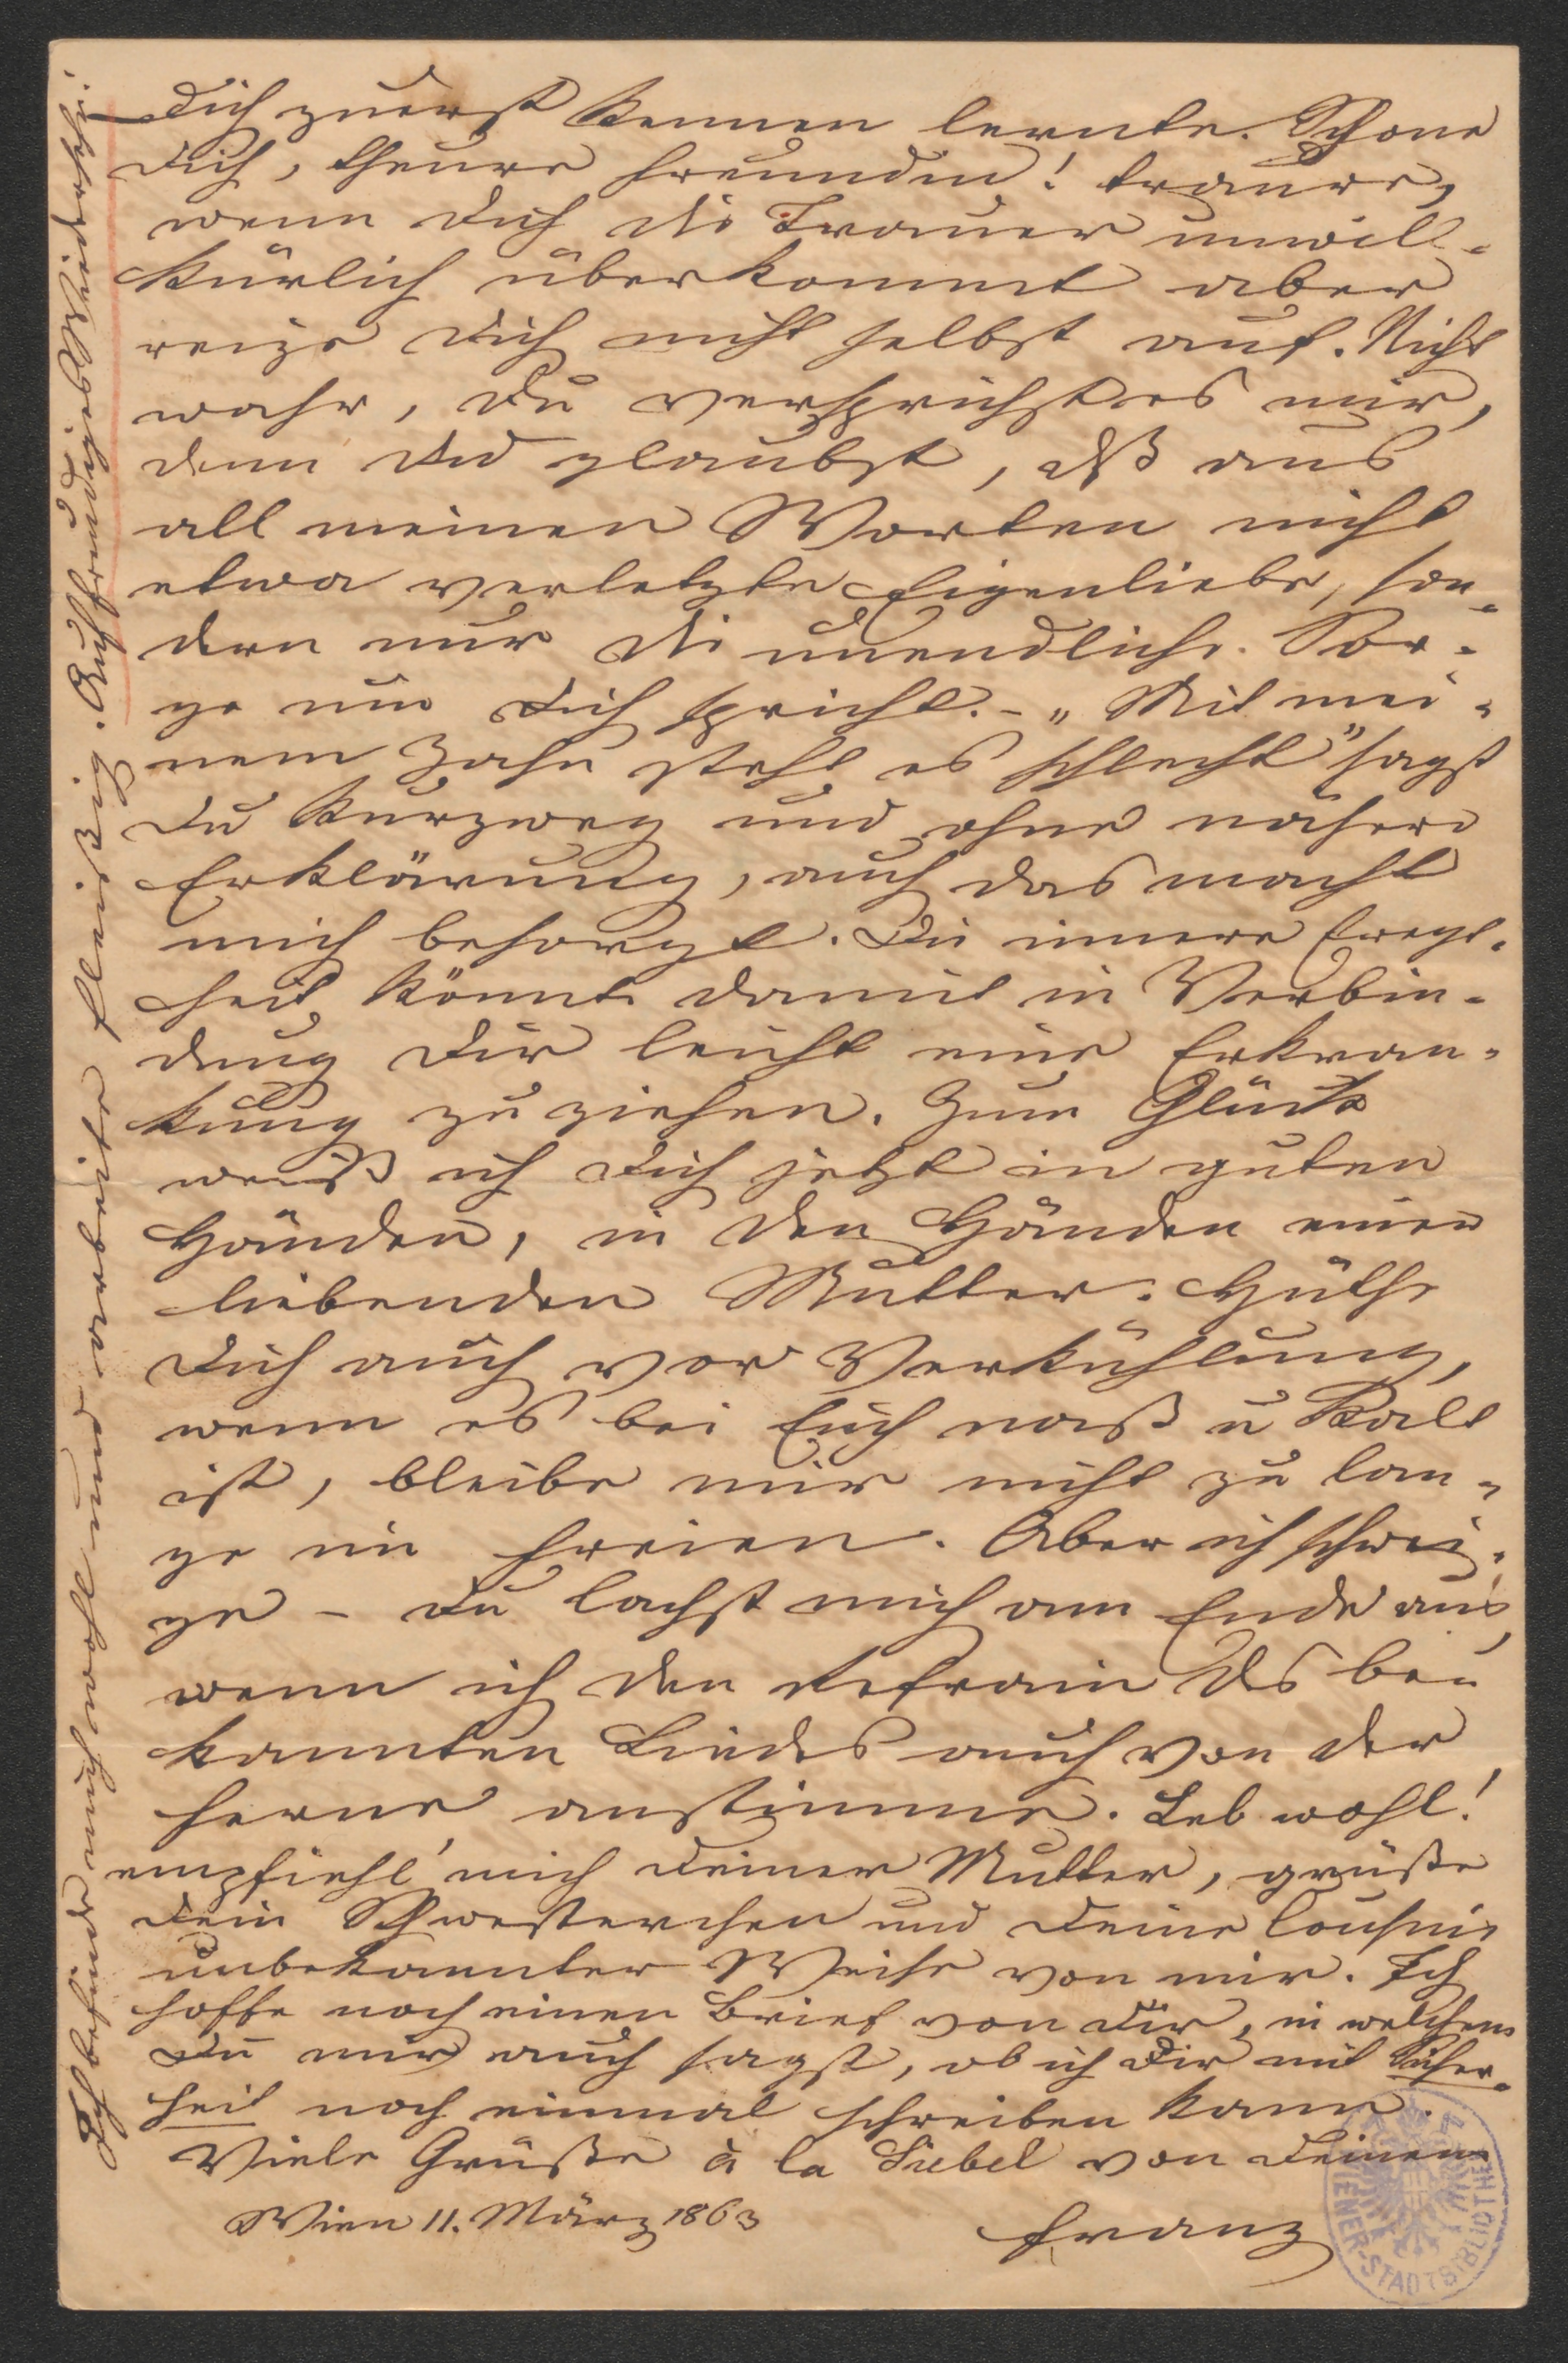 Dich zuerst kennen lernte. Schone
Dich, theure Freundin! traure,
wenn Dich die Trauer unwill-
kürlich überkommt aber
reize Dich nicht selbst auf. Nicht
wahr, Du versprichst es mir,
denn Du glaubst, dß aus
all meinen Worten nicht
etwa verletzte Eigenliebe, son-
dern nur die unendliche Sor-
ge um Dich spricht. - „Mit mei-
nem Zahn steht es schlecht" sagst
Du kurzweg und ohne nähere
Erklärung, auch das macht
mich besorgt. Die innere Erregt-
heit könnte damit in Verbin-
dung Dir leicht eine Erkran-
kung zuziehen. Zum Glück
weiß ich Dich jetzt in guten
Händen, in den Händen einer
liebenden Mutter. Hüthe
Dich auch vor Verkühlung,
wenn es bei Euch naß u kalt
ist, bleibe mir nicht zu lan-
ge im Freien. Aber ich schwei-
ge - Du lachst mich am Ende aus,
wenn ich den Refrain des be-
kannten Liedes auch von der
Ferne anstimme. Leb wohl!
empfiehl' mich Deiner Mutter, grüße
Dein Schwesterchen und Deine Cousine
unbekannter Weise von mir. Ich
hoffe noch einen Brief von Dir, in welchem
Du mir auch sagst, ob ich Dir mit Sicher-
heit noch einmal schreiben kann.
Viele Grüße à la Siebel von Deinem
Wien 11. März 1863
Franz
Ich befinde mich wohl und arbeite fleißig. Auf freudiges Wiedersehn!
WIENER-STADTBIBLIOTHEK